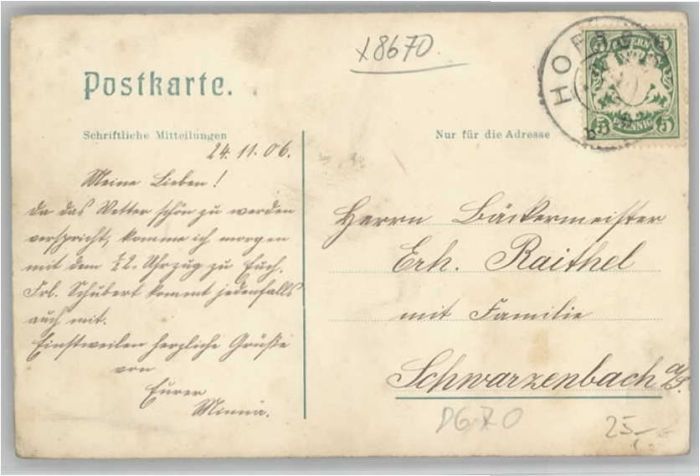 x8670.
Postkarte.
HOF
BAYERN
5 5
5 PFENNIG 5
Schriftliche Mitteilungen
Nur für die Adresse
24.11.06.
Meine Lieben!
Da das Wetter schön zu werden
verspricht, komme ich morgen
mit dem ½2. Uhrzug zu Euch.
Frl. Schubert kommt jedenfalls
auch mit.
Einstweilen herzliche Grüße
von
Eurer
Minna.
Herrn Bäckermeister
Erh. Raithel
mit Familie
Schwarzenbach a/S.
DGRO
25,-